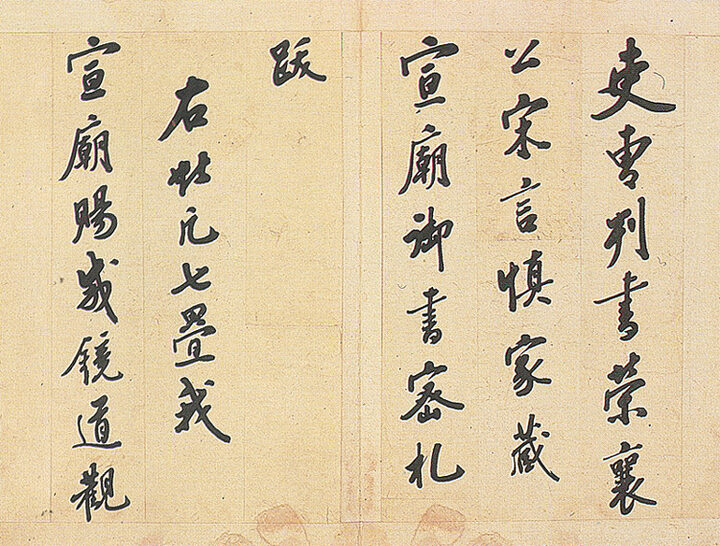 吏曹判書榮襄
公宋言慎家藏
宣廟御書密札
跋
右批凡七疊我
宣廟賜咸鏡道觀